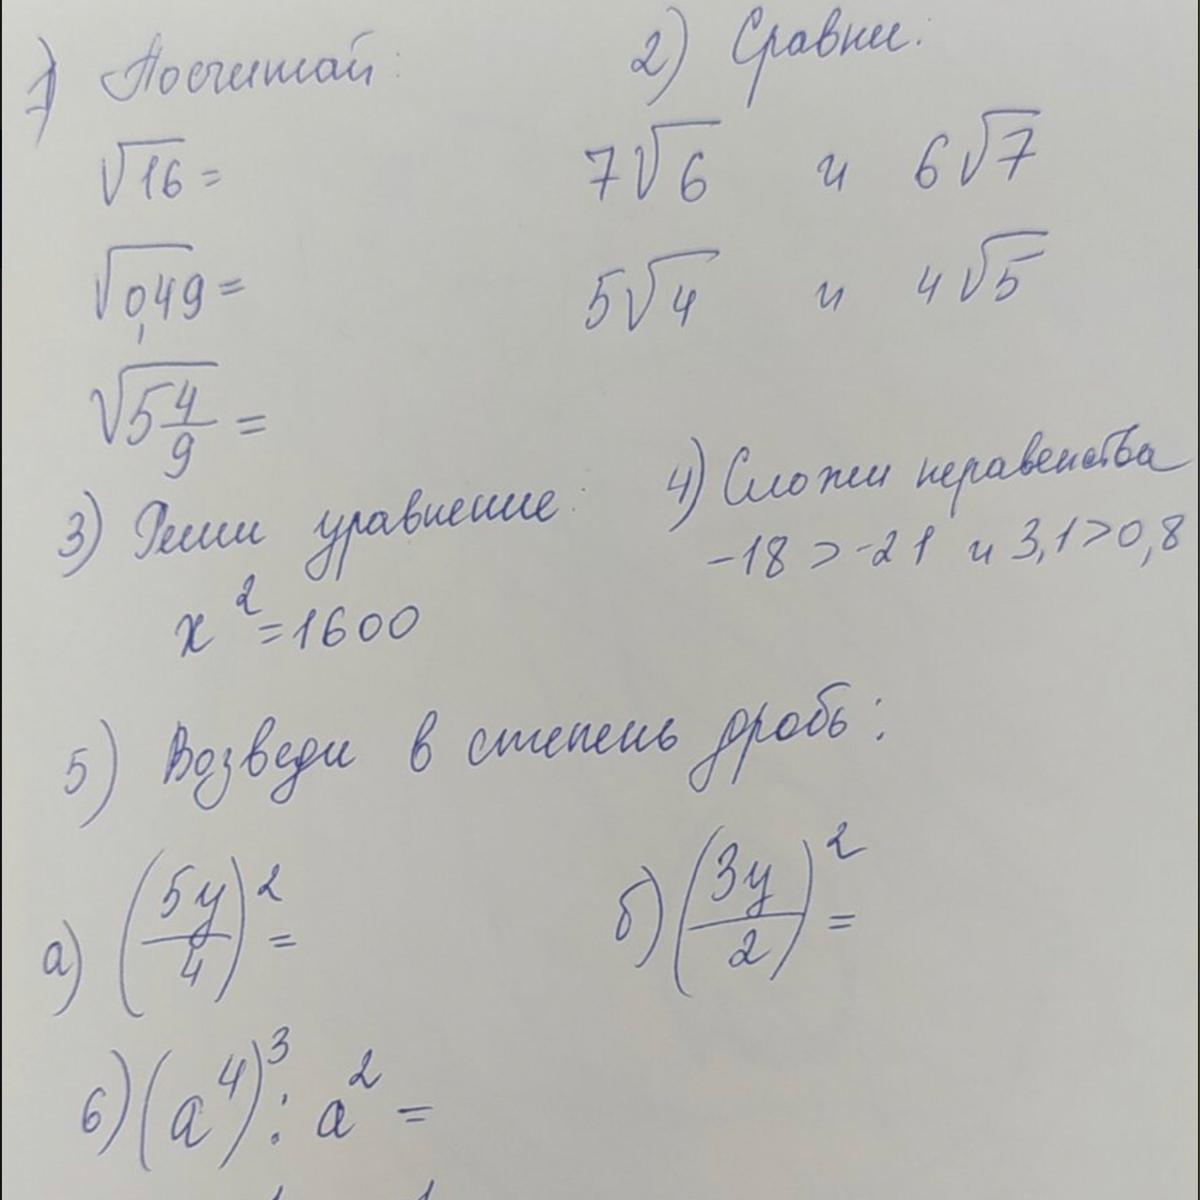 1) Посчитай:
√16 =
√0,49 =
√5 4/9 =
2) Сравни:
7√6 и 6√7
5√4 и 4√5
3) Реши уравнение:
x² = 1600
4) Сложи неравенства
-18 > -21 и 3,1 > 0,8
5) Возведи в степень дробь:
а) (5y/4)² =
б) (3y/2)² =
6) (a⁴)³ : a² =